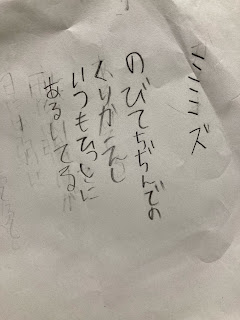 ミミズ
のびてちぢんでの
くりかえし
いつも
あるいてる